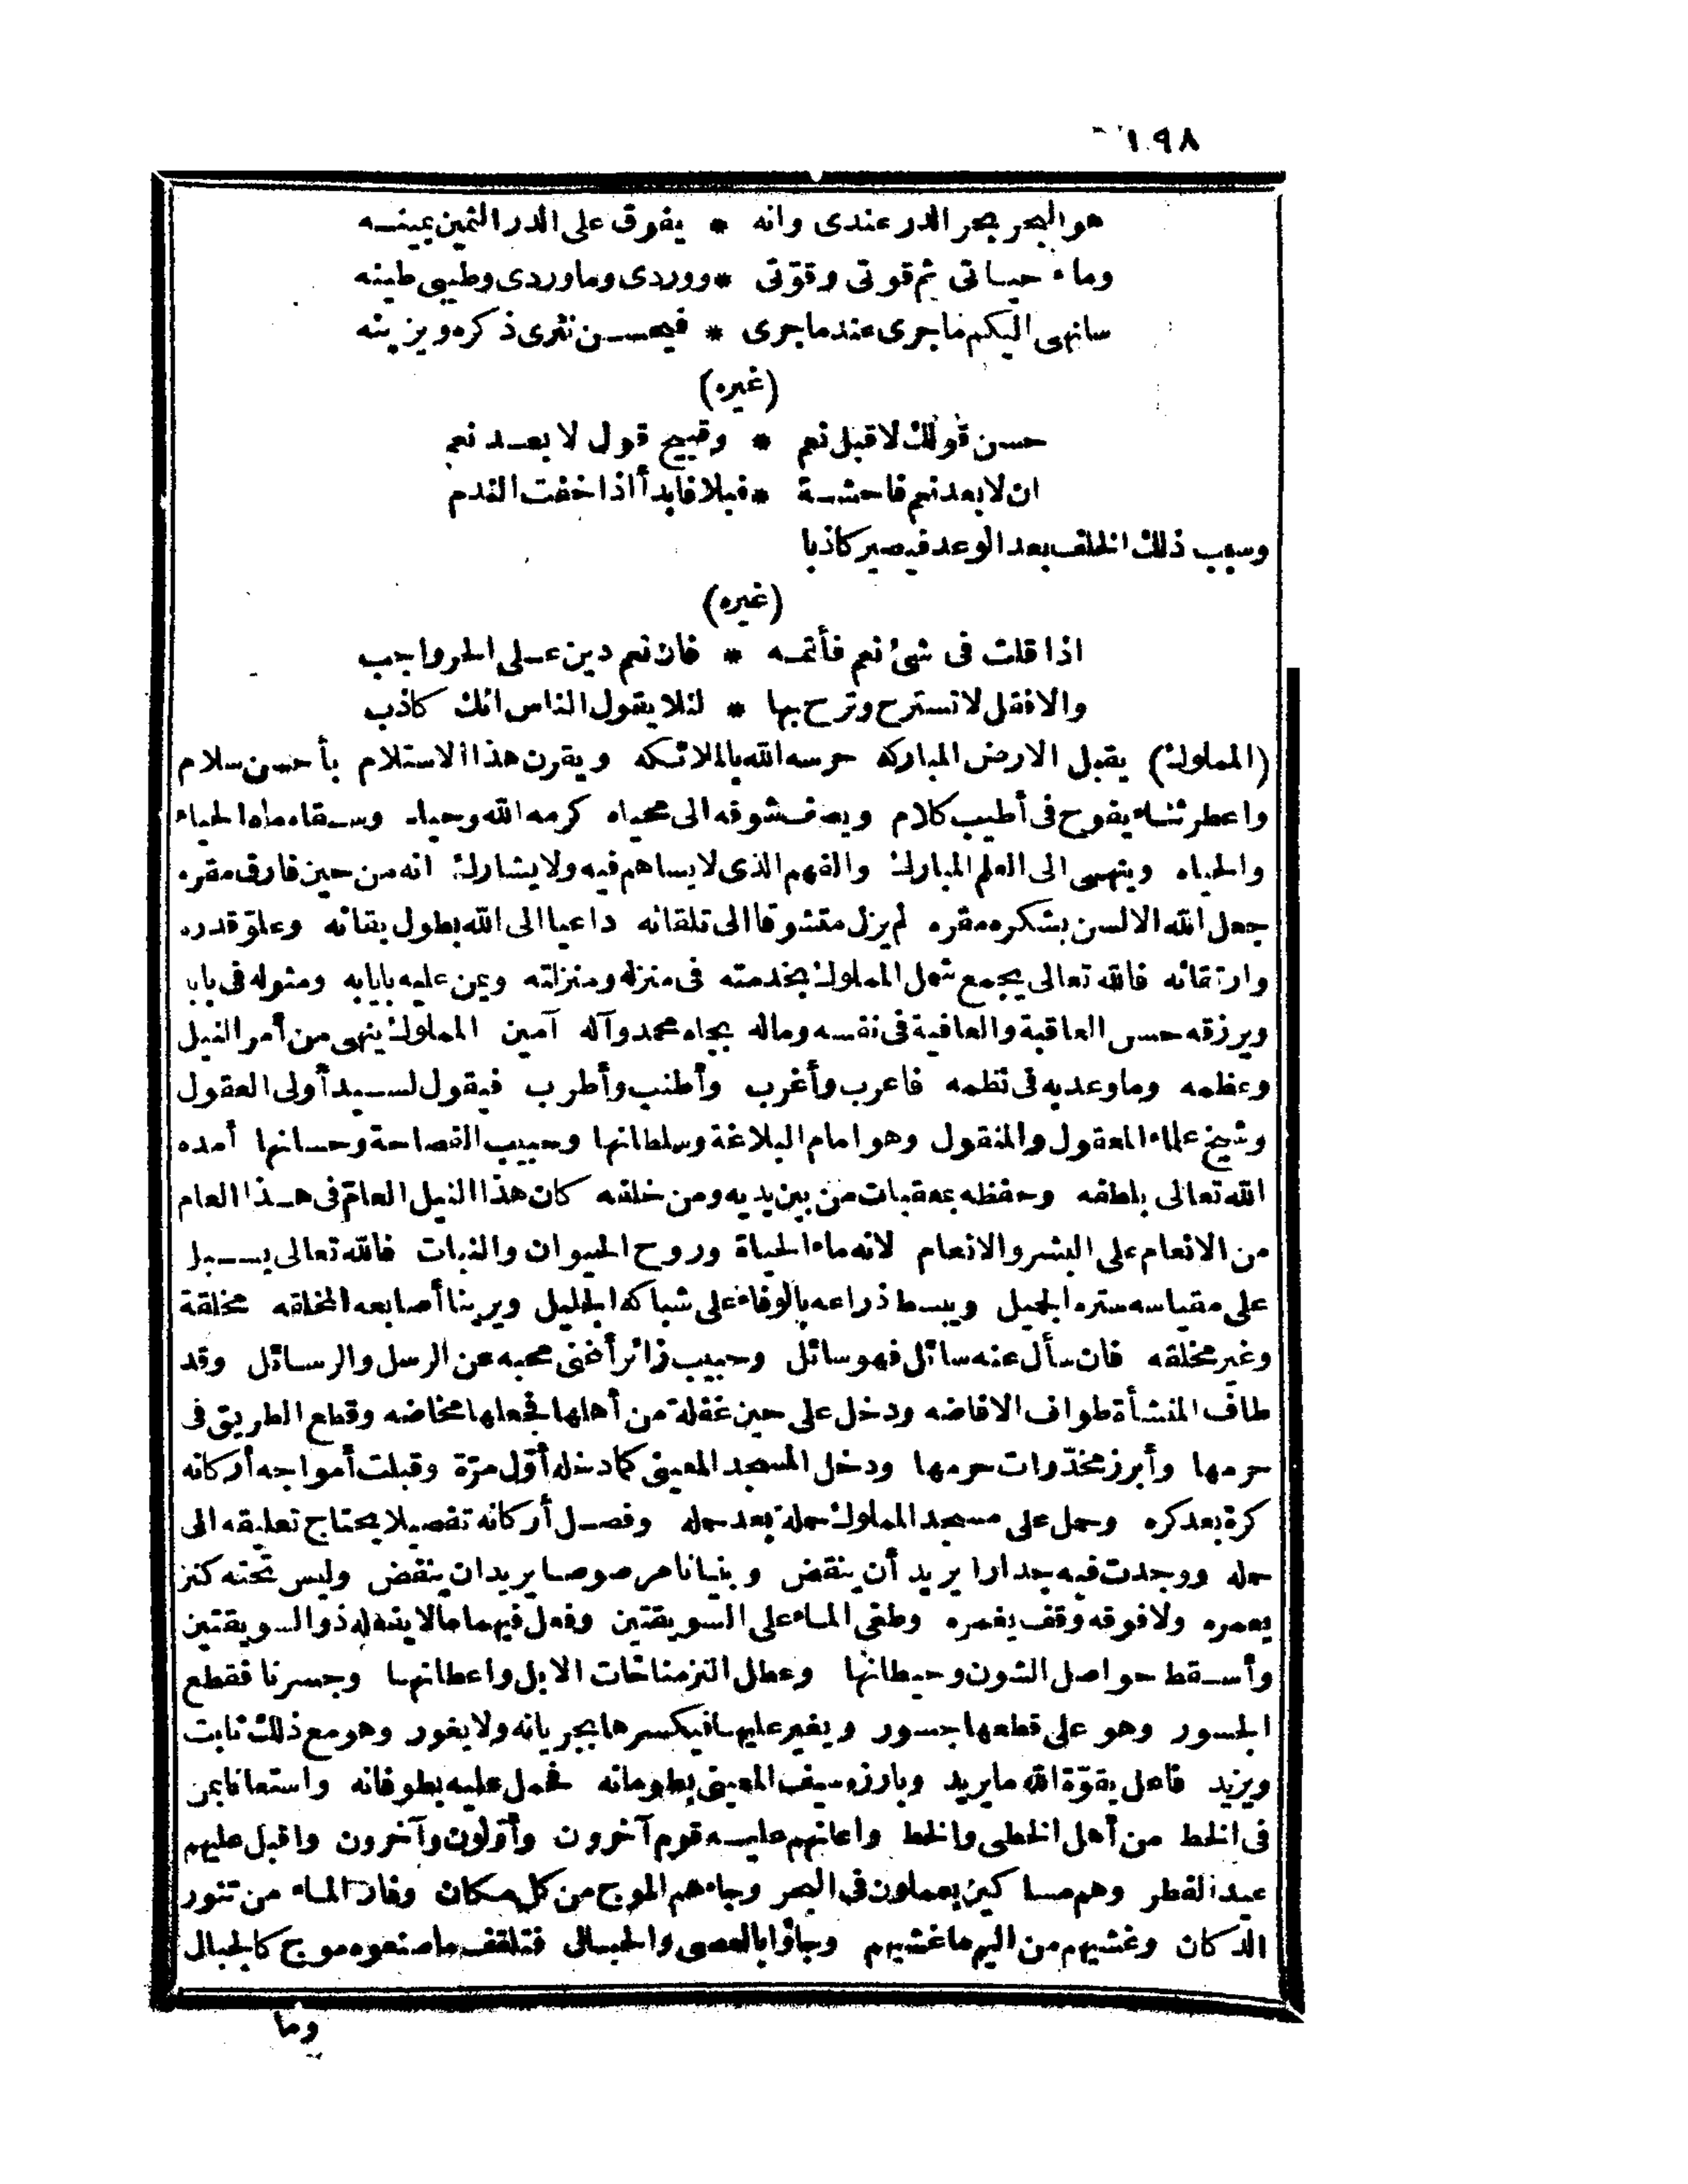 ١٩٨
هو البحر بحر الدر عندى وانه * يفوق على الدر الثمين بمينــه
وماء حيـاتى ثم قوتى وقوّتى * ووردى وماوردى وطيبى طينه
سانهى اليكم ماجرى عند ماجرى * فيحســن نثرى ذكره ويزينه
(غيره)
حسن قولك لا قبل نعم * وقبيح قول لا بعــد نعم
ان لا بعد نعم فاحشــة * فبلا فابدأ اذا خفت الندم
وسبب ذلك الخلف بعد الوعد فيصير كاذبا
(غيره)
اذا قلت فى شئ نعم فأتمــه * فان نعم دين عــلى الحر واجب
والا فقل لا تسترح وترح بها * لئلا يقول الناس انك كاذب
(المملوك) يقبل الارض المباركه حرسه الله بالملائكه ويقرن هذا الاستلام بأحسن سلام
واعطر ثنــاء يفوح فى أطيب كلام ويصف شوقه الى محياه كرمه الله وحياه وســقاه ماء الحياء
والحياه وينهــى الى العلم المبارك والفهم الذى لا يساهم فيه ولا يشارك انه من حين فارق مقره
جعل الله الالسن بشكره مقره لم يزل متشوقا الى تلقائه داعيا الى الله بطول بقائه وعلوّ قدره
وارتقائه فالله تعالى يجمع شمل المملوك بخدمته فى منزله ومنزلته ويمن عليه بايابه ومثوله فى بابه
ويرزقه حسن العاقبة والعافية فى نفسه وماله بجاه محمد وآله آمين المملوك ينهى من أمر النيل
وعظمه وما وعد به فى نظمه فاعرب وأغرب وأطنب وأطرب فيقول لســيد أولى العقول
وشيخ علماء المعقول والمنقول وهو امام البلاغة وسلطانها وحبيب الفصاحة وحسانها أمده
الله تعالى بلطفه وحفظه بمعقبات من بين يديه ومن خلفه كان هذا النيل العامّ فى هــذا العام
من الانعام على البشر والانعام لانه ماء الحياة وروح الحيوان والنبات فالله تعالى يســبل
على مقياسه ستره الجميل ويبسط ذراعه بالوفاء على شباكه الجليل ويرينا أصابعه المخلقه مخلقة
وغير مخلقه فان سأل عنه سائل فهو سائل وحبيب زائر أغنى محبه عن الرسل والرسائل وقد
طاف المنشأة طواف الافاضه ودخل على حين غفلة من أهلها فجعلها مخاضه وقطع الطريق فى
حرمها وأبرز مخدّرات حرمها ودخل المسجد المعينى كما دخله أوّل مرّة وقبلت أمواجه أركانه
كرة بعد كره وحمل على مسجد المملوك حملة بعد حمله وفصــل أركانه تفصيلا يحتاج تعليقه الى
حمله ووجدت فيه جدارا يريد أن ينقض وبنيانا مرصوصا يريد ان ينفض وليس تحته كنز
يعمره ولا فوقه وقف يغمره وطغى المــاء على السويقتين وفعل فيهما ما لا يفعله ذو السويقتين
وأســقط حواصل الشون وحيطانها وعطل النز مناخات الابل واعطانهــا وجسرنا فقطع
الجسور وهو على قطعها جسور ويغير عليهــا فيكسرها بجريانه ولا يغور وهو مع ذلك ثابت
ويزيد فاعل بقوّة الله ما يريد وبارز وسيف المعينى بطومانه فحمل عليه بطوفانه واستعانا بمن
فى الخط من أهل الخطى والخط واعانهم عليــه قوم آخرون وأوّلون وآخرون واقبل عليهم
عيد الفطر وهم مساكين يعملون فى البحر وجاءهم الموج من كل مكان وفار المــاء من تنور
الدكان وغشيهم من اليم ما غشيهم وجاؤا بالعصى والحبــال فتلقف ما صنعوه موج كالجبال
وما